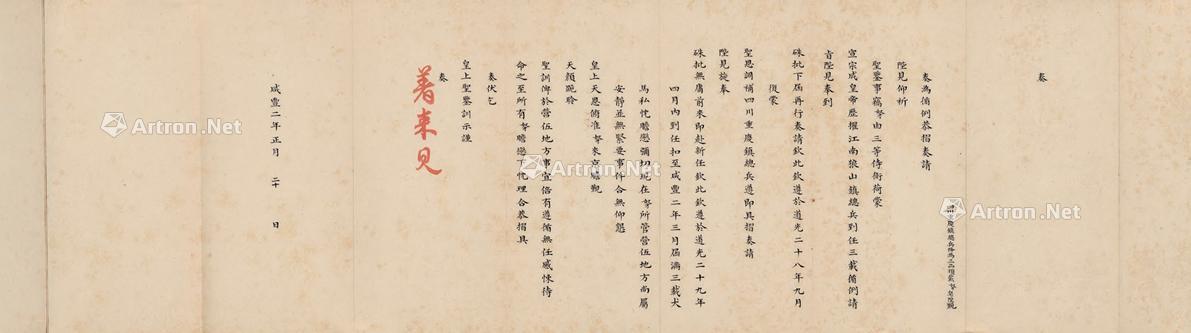 奏
四川重慶鎮總兵
奏為循例恭摺奏請
陛見仰祈
聖鑒事竊奴才由三等侍衛荷蒙
宣宗成皇帝歷擢江南狼山鎮總兵到任三載循例請
旨陛見奉到
硃批下屆再行奏請欽此欽遵於道光二十八年九月
復蒙
聖恩調補四川重慶鎮總兵遵即具摺奏請
陛見旋奉
硃批無庸前來即赴新任欽此欽遵於道光二十九年
四月內到任扣至咸豐二年三月屆滿三載犬
馬私忱瞻戀彌切現在奴才所管營伍地方尚屬
安靜並無緊要事件合無仰懇
皇上天恩俯准奴才來京瞻覲
天顏跪聆
聖訓俾於營伍地方事宜倍有遵循無任感悚待
命之至所有奴才瞻戀下忱理合恭摺具
奏伏乞
皇上聖鑒訓示謹
奏
著來見
咸豐二年正月 二十 日
Artron.Net
Artron.Net
Artron.Net